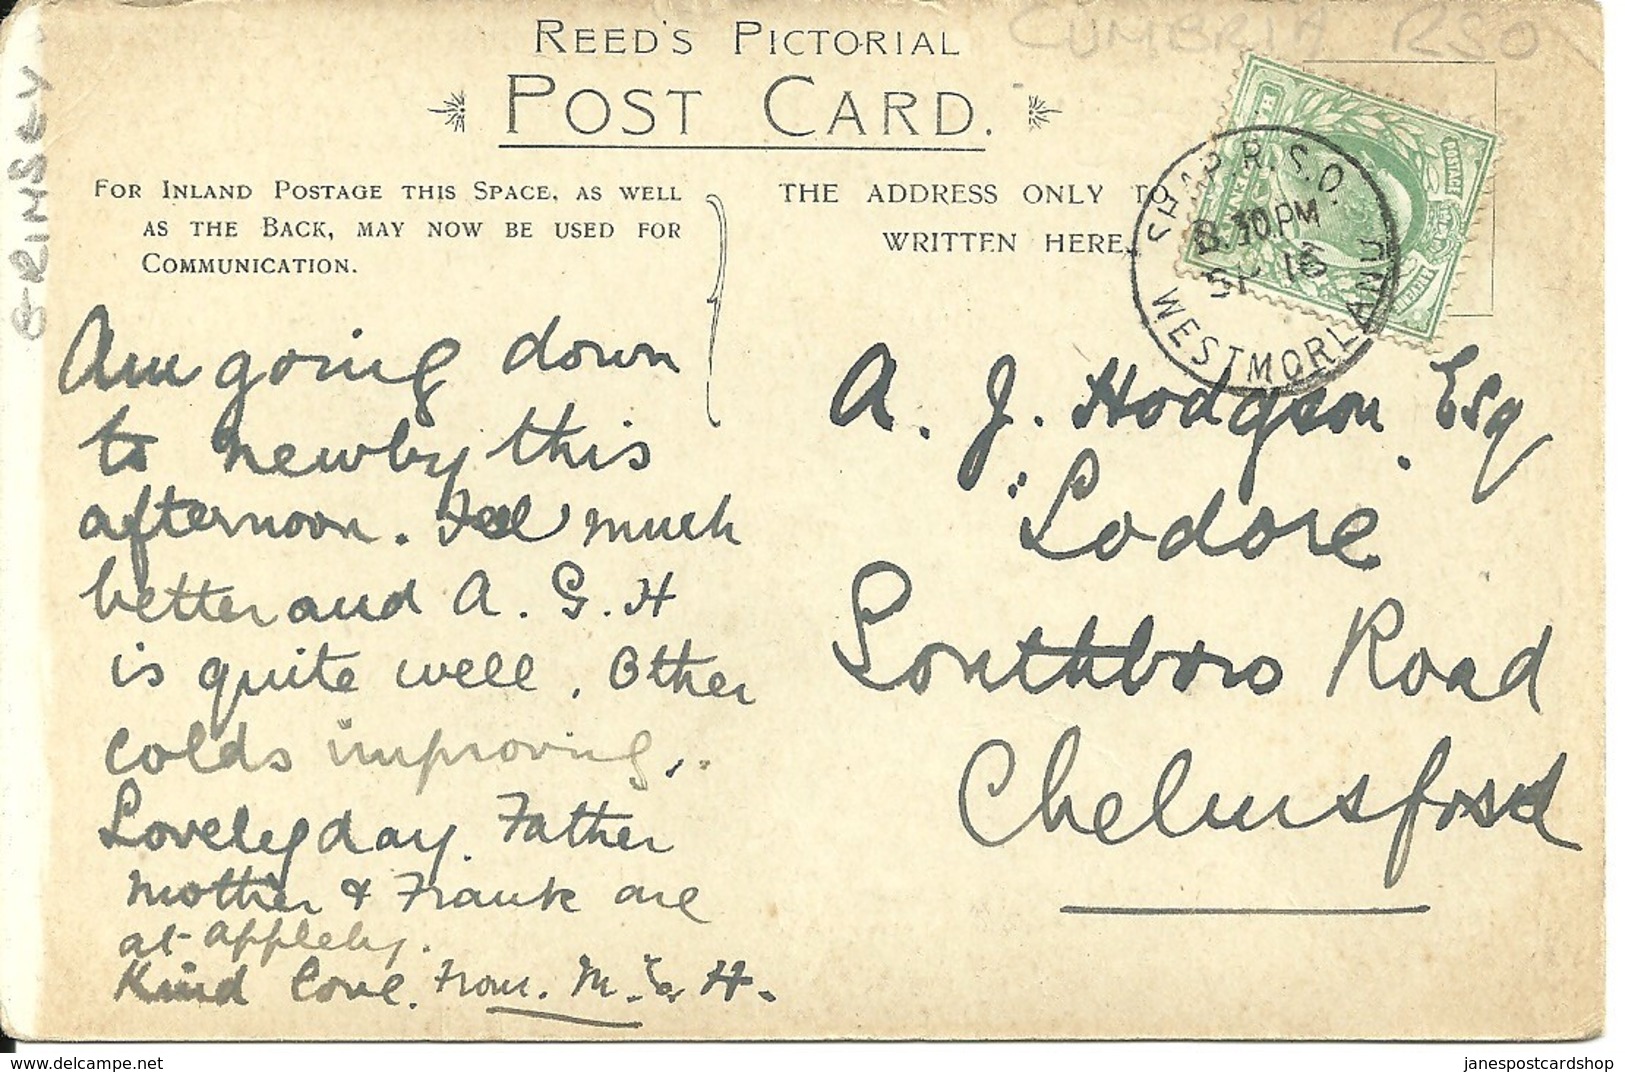 CUMBRIA RSO
GRIMSEY
REED'S PICTORIAL
POST CARD.
FOR INLAND POSTAGE THIS SPACE, AS WELL
AS THE BACK, MAY NOW BE USED FOR
COMMUNICATION.
THE ADDRESS ONLY TO
WRITTEN HERE.
SHAP R.S.O.
8.30.PM
SP 16
WESTMORLAND
POSTAGE
Am going down
to newby this
afternoon. Feel much
better and A. G. H
is quite well. Other
colds improving.
Lovely day. Father
Mother & Frank are
at Appleby.
Kind love. From. M. H.
A. J. Hodgson. Esq
"Lodore
Southboro Road
Chelmsford
delcampe.net
janespostcardshop